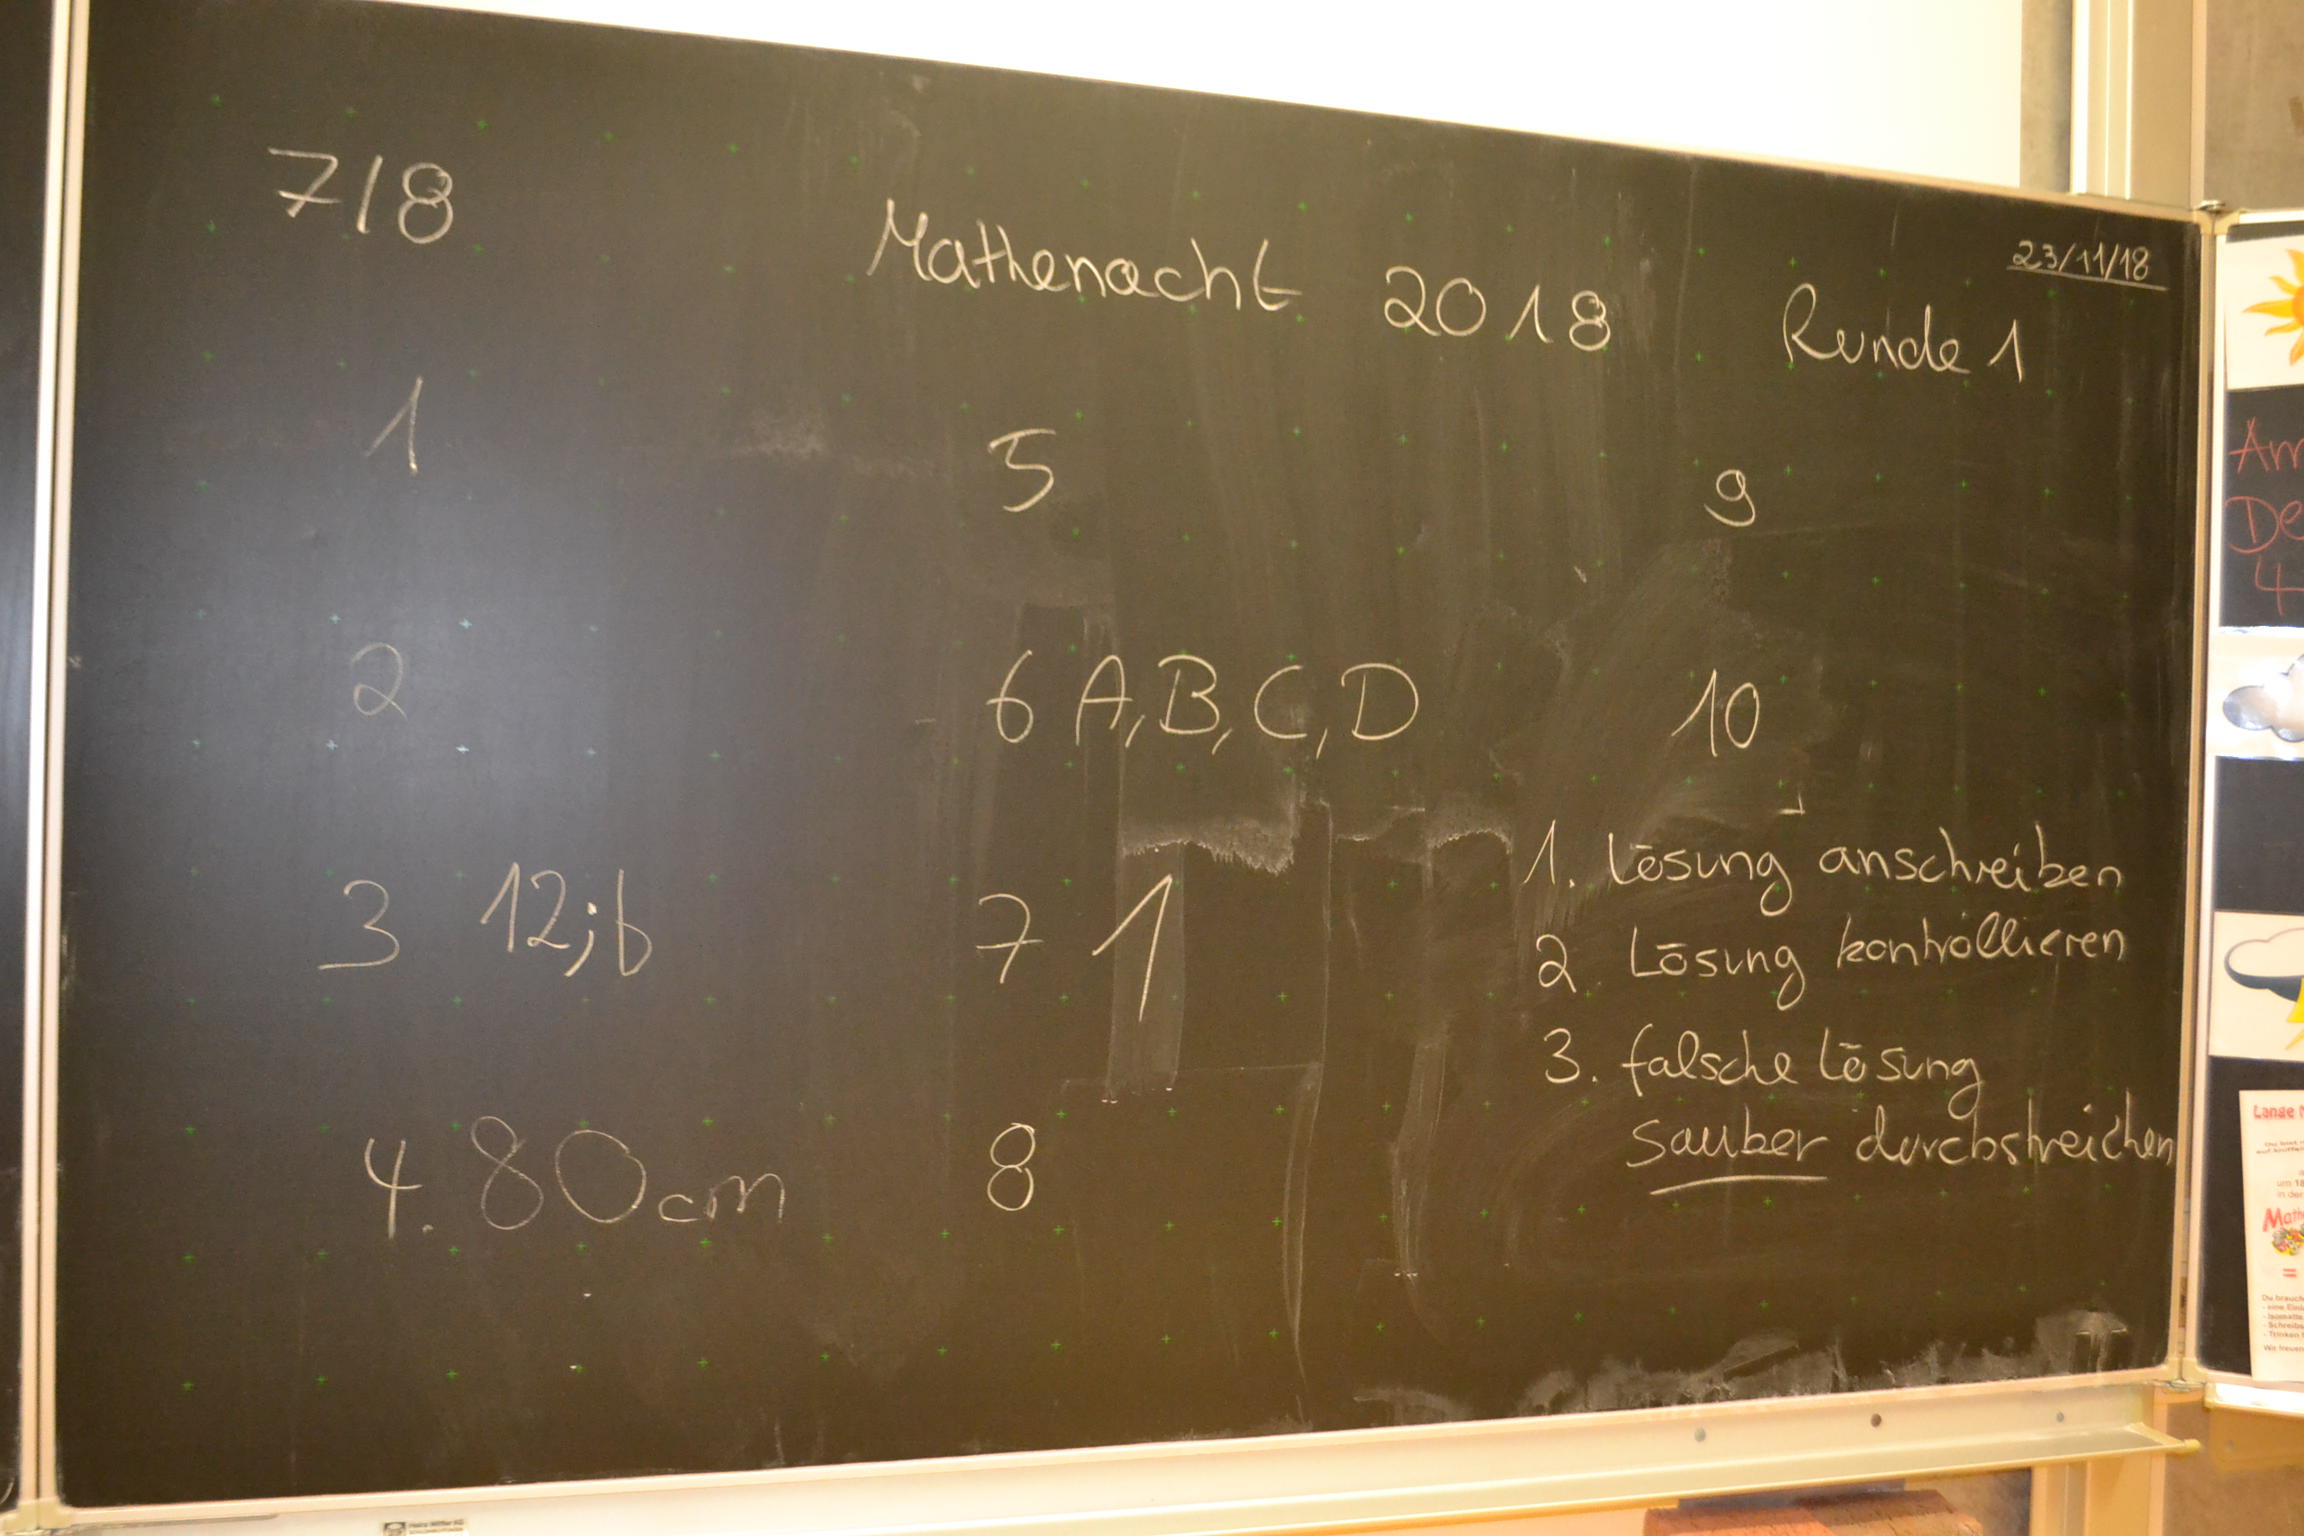 7/8
Mathenacht 2018 Runde 1
23/11/18
1
5
9
2
6 A, B, C, D
10
3 12;6
7 1
4. 80cm
8
1. Lösung anschreiben
2. Lösung kontrollieren
3. falsche Lösung
sauber durchstreichen
Am
De
4
Lange
um 18
in der
Math
=
Du brauch
Wir freuen